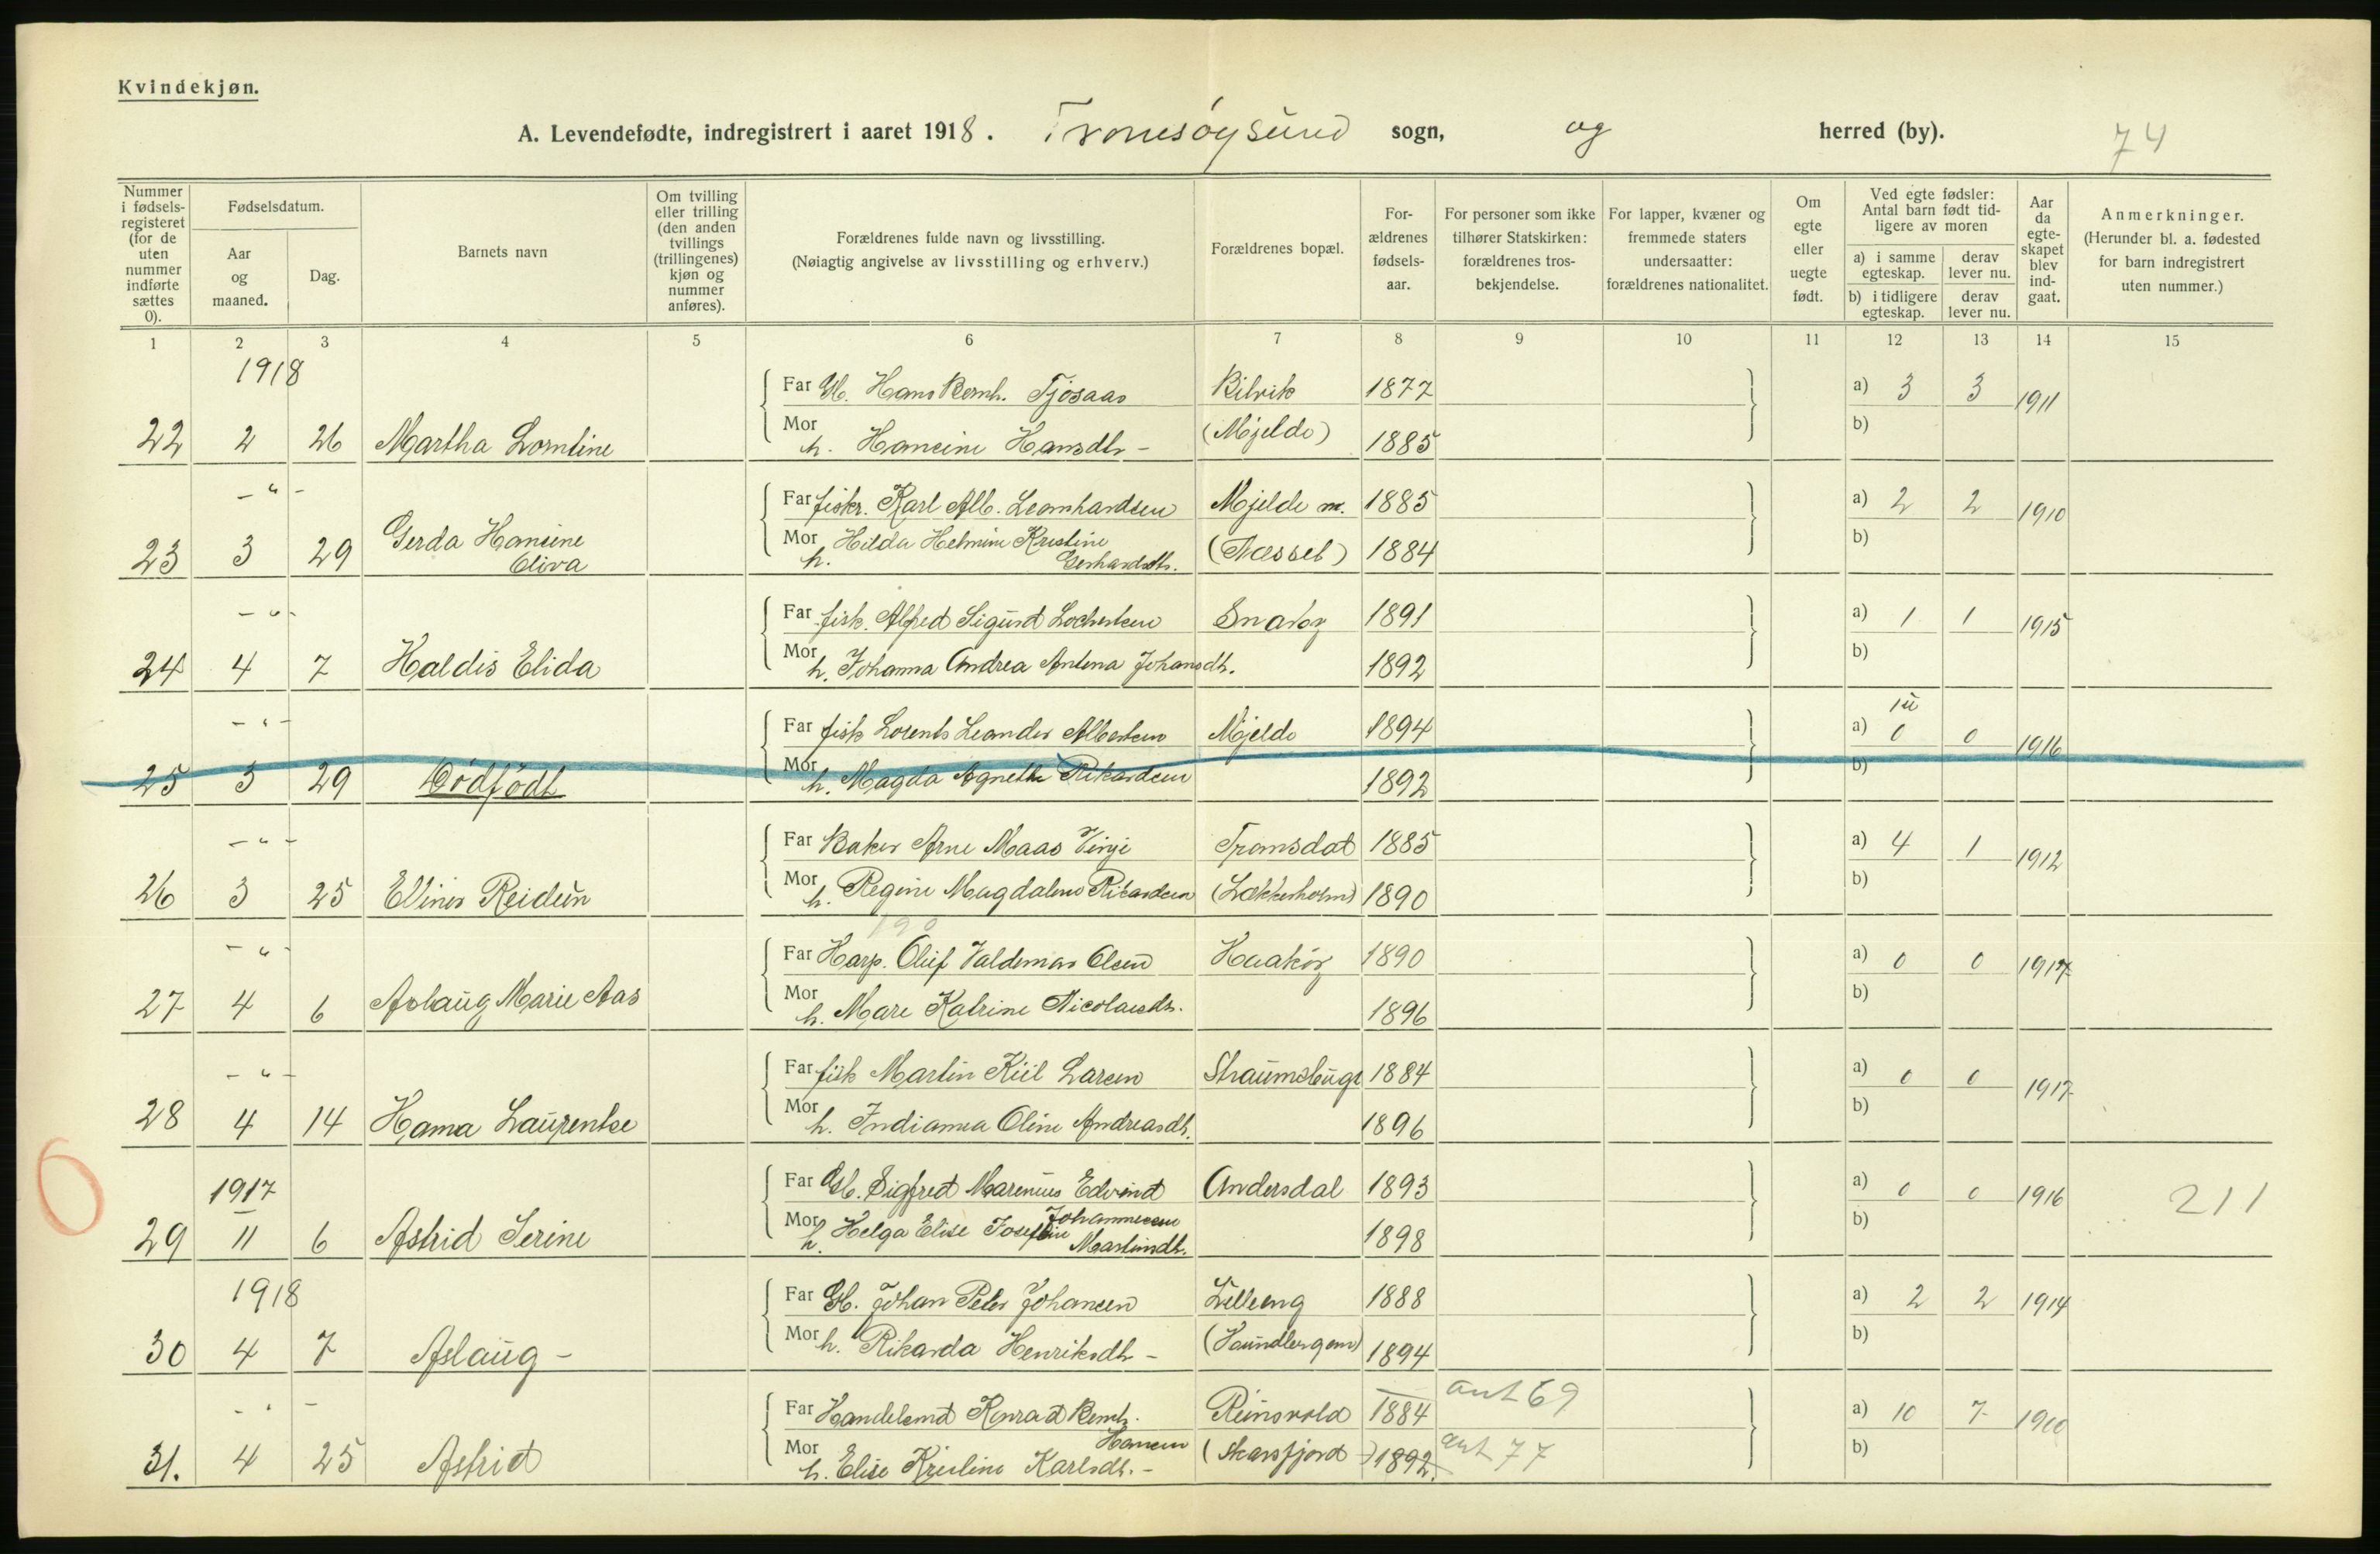 Kvindekjøn.
A. Levendefødte, indregistrert i aaret 1918. Tromsøysund sogn, og herred (by). 74
Nummer i fødsels-registeret (for de uten nummer indførte sættes 0).
Fødselsdatum.
Aar og maaned.
Dag.
Barnets navn
Om tvilling eller trilling (den anden tvillings (trillingenes) kjøn og nummer anføres).
Forældrenes fulde navn og livsstilling.
(Nøiagtig angivelse av livsstilling og erhverv.)
Forældrenes bopæl.
For-ældrenes fødsels-aar.
For personer som ikke tilhører Statskirken: forældrenes tros-bekjendelse.
For lapper, kvæner og fremmede staters undersaatter: forældrenes nationalitet.
Om egte eller uegte født.
Ved egte fødsler: Antal barn født tid-ligere av moren
a) i samme egteskap.
derav lever nu.
b) i tidligere egteskap.
derav lever nu.
Aar da egte-skapet blev ind-gaat.
Anmerkninger.
(Herunder bl. a. fødested for barn indregistrert uten nummer.)
1 2 3 4 5 6 7 8 9 10 11 12 13 14 15
1918
Far Gb. Hans Bernh. Tjosaas Kilvik 1877 a) 3 3 1911
22 2 26 Martha Lorntine Mor h. Hansine Hansdtr - (Mjelde) 1885 b)
- " -
Far fiskr. Karl Alb. Leonhardsen Mjelde m. 1885 a) 2 2 1910
23 3 29 Gerda Hansine Oliva Mor h. Hilda Helmine Kristine Gerhardsdtr. (Næsset) 1884 b)
- " -
Far fisk. Alfred Sigurd Lochertsen 1891 a) 1 1 1915
24 4 7 Haldis Elida Mor h. Johanna Andrea Antona Johansdtr. 1892 b)
- " -
Far fisk Lorents Leander Albertsen Mjelde 1894 a) 0 0 1916
25 3 29 Dødfødt Mor h. Magda Agnethe Rikardsen 1892 b)
- " -
Far Baker Arne Maas Vinje Tromsdal 1885 a) 4 1 1912
26 3 25 Ellinor Reidun Mor h. Regine Magdalene Rikardsen (Lækkerholm) 1890 b)
- " -
Far Harp. Oluf Valdemar Olsen Haakøy 1890 a) 0 0 1917
27 4 6 Aslaug Marie Aas Mor h. Mare Katrine Nicolaisdtr. 1896 b)
- " -
Far fisk Martin Kiil Larsen 1884 a) 0 0 1917
28 4 14 Hanna Laurentse Mor h. Indianna Oline Andreasdtr. 1896 b)
1917
Far Gb. Sigfred Marenius Edvind Johannessen Andersdal 1893 a) 0 0 1916 211
29 11 6 Astrid Serine Mor h. Helga Elise Josefine Martinsdtr. 1898 b)
1918
Far Gb. Johan Peter Johansen 1888 a) 2 2 1914
30 4 7 Aslaug - Mor h. Rikarda Henriksdtr - 1894 b)
- " -
Far Handelsmd Konrad Bernh. Hansen Reinsvold 1884 ant 69 a) 10 7 1910
31. 4 25 Astrid Mor h. Elise Kristine Karlsdtr. - (Skarsfjord) 1892. ant 77 b)